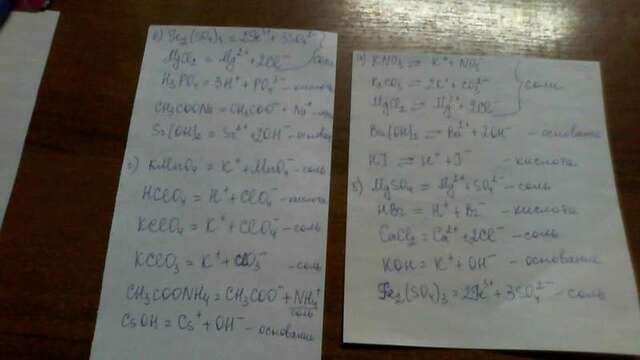 в) Fe₂(SO₄)₃ = 2Fe³⁺ + 3SO₄²⁻
MgCl₂ = Mg²⁺ + 2Cl⁻ соли
H₃PO₄ = 3H⁺ + PO₄³⁻ - кислота
CH₃COONa = CH₃COO⁻ + Na⁺ -
Sr(OH)₂ = Sr²⁺ + 2OH⁻ - основание
г) KMnO₄ = K⁺ + MnO₄⁻ - соль
HClO₄ = H⁺ + ClO₄⁻ - кислота
KClO₄ = K⁺ + ClO₄⁻ - соль
KClO₃ = K⁺ + ClO₃⁻ - соль
CH₃COONH₄ = CH₃COO⁻ + NH₄⁺
соль
CsOH = Cs⁺ + OH⁻ - основание
а) KNO₃ ⇌ K⁺ + NO₃⁻
K₂CO₃ ⇌ 2K⁺ + CO₃²⁻ соли
MgCl₂ ⇌ Mg²⁺ + 2Cl⁻
Ba(OH)₂ ⇌ Ba²⁺ + 2OH⁻ - основание
HI ⇌ H⁺ + I⁻ - кислота
б) MgSO₄ = Mg²⁺ + SO₄²⁻ - соль
HBr = H⁺ + Br⁻ - кислота
CaCl₂ = Ca²⁺ + 2Cl⁻ - соль
KOH = K⁺ + OH⁻ - основание
Fe₂(SO₄)₃ = 2Fe³⁺ + 3SO₄²⁻ - соль